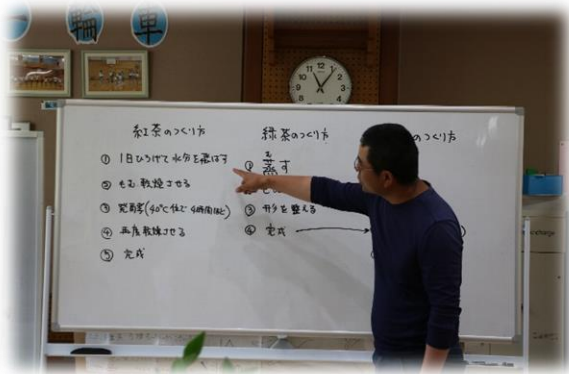 一輪車
紅茶のつくり方
① 1日ひろげて水分を飛ばす
② もむ、乾燥させる
③ 発酵(40℃位で4時間ほど)
④ 再度乾燥させる
⑤ 完成
緑茶のつくり方
① 蒸す
む
③ 形を整える
④ 完成
のつくり方